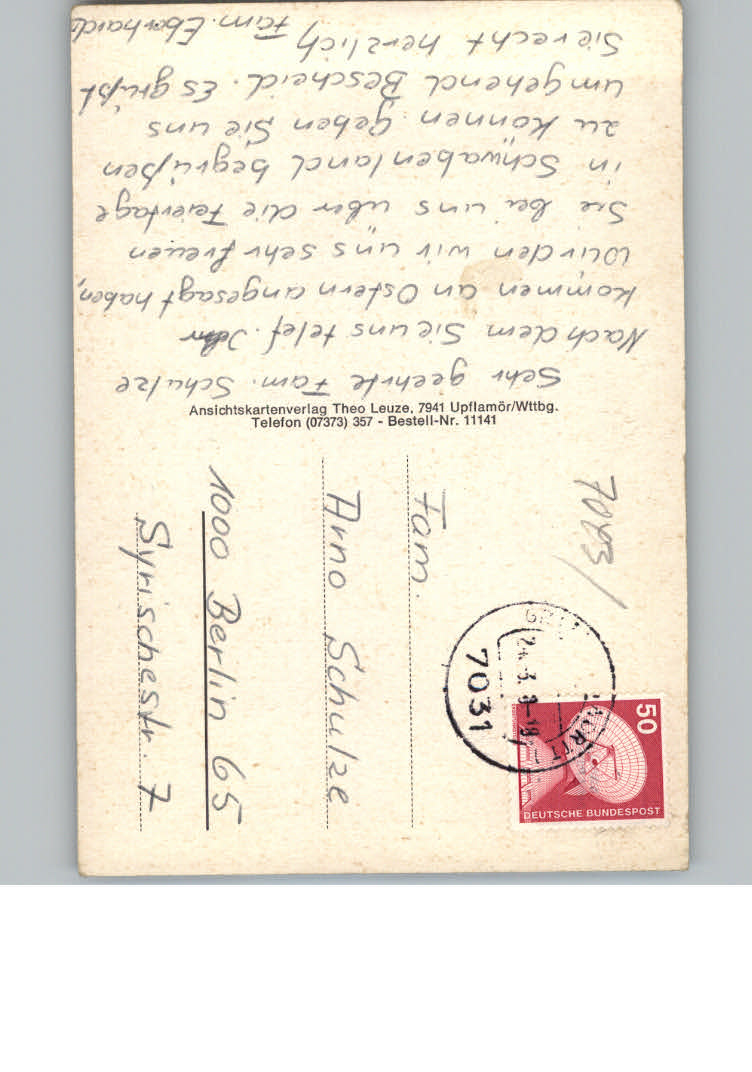 Sehr geehrte Fam. Schulze
Nach dem Sie uns telef. Ihr
kommen an Ostern angesagt haben,
würden wir uns sehr freuen
Sie bei uns über die Feiertage
in Schwabenland begrüßen
zu können. Geben Sie uns
umgehend Bescheid. Es grüßt
Sie recht herzlich
Fam. Eberhard
Ansichtskartenverlag Theo Leuze, 7941 Upflamör/Wttbg.
Telefon (07373) 357 - Bestell-Nr. 11141
Fam.
Arno Schulze
1000 Berlin 65
Syrischestr. 7
7031
50
DEUTSCHE BUNDESPOST